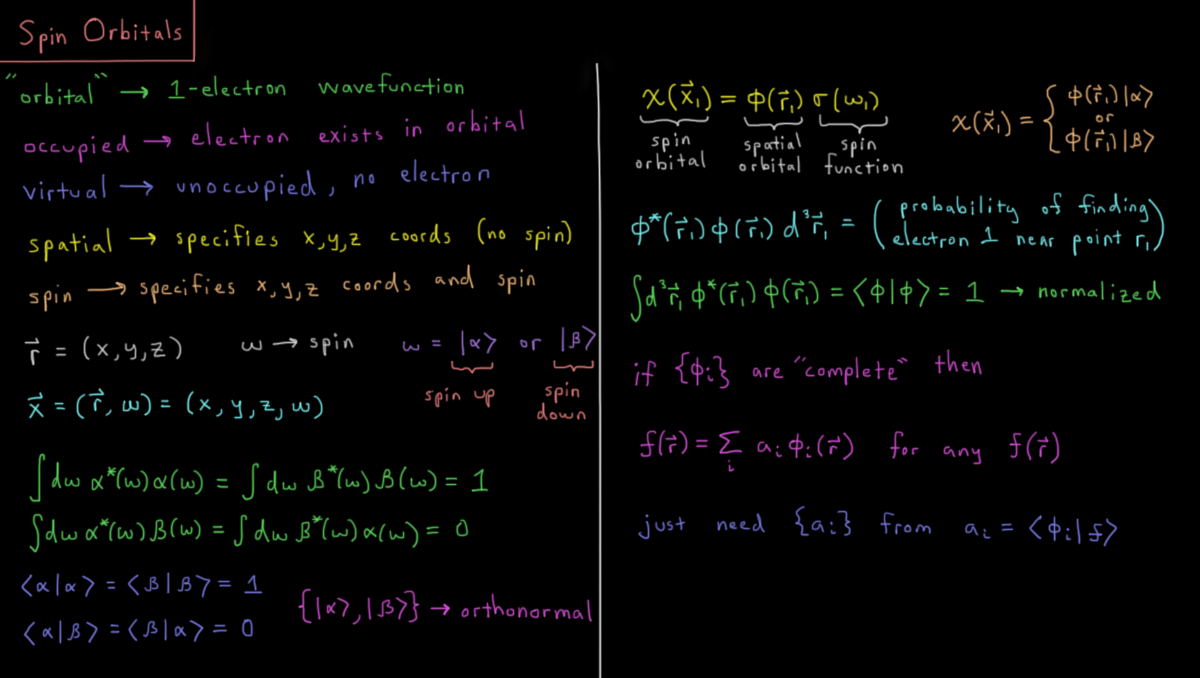 Spin Orbitals
"orbital" → 1-electron wavefunction
occupied → electron exists in orbital
virtual → unoccupied, no electron
spatial → specifies x,y,z coords (no spin)
spin → specifies x,y,z coords and spin
r⃗ = (x,y,z) w → spin w = |α⟩ or |β⟩
spin up spin down
x⃗ = (r⃗, w) = (x, y, z, w)
∫dw α*(w)α(w) = ∫dw β*(w)β(w) = 1
∫dw α*(w)β(w) = ∫dw β*(w)α(w) = 0
⟨α|α⟩ = ⟨β|β⟩ = 1
⟨α|β⟩ = ⟨β|α⟩ = 0
{|α⟩, |β⟩} → orthonormal
χ(x⃗₁) = ϕ(r⃗₁) σ(w₁)
spin orbital spatial orbital spin function
χ(x⃗₁) = { ϕ(r⃗₁)|α⟩
or
ϕ(r⃗₁)|β⟩
ϕ*(r⃗₁)ϕ(r⃗₁) d³r⃗₁ = (probability of finding
electron 1 near point r₁)
∫d³r⃗₁ ϕ*(r⃗₁) ϕ(r⃗₁) = ⟨ϕ|ϕ⟩ = 1 → normalized
if {ϕᵢ} are "complete" then
f(r⃗) = Σᵢ aᵢ ϕᵢ(r⃗) for any f(r⃗)
just need {aᵢ} from aᵢ = ⟨ϕᵢ|f⟩